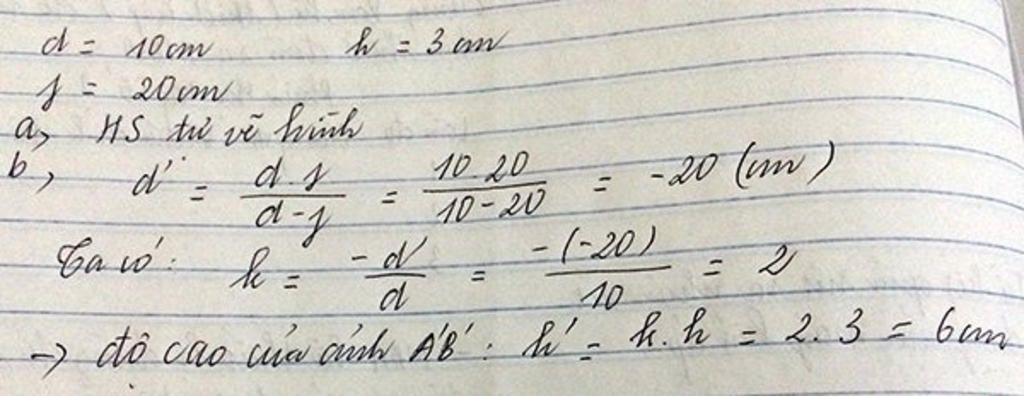 d = 10cm h = 3cm
f = 20cm
a, HS tự vẽ hình
b, d' = d.f / d-f = 10.20 / 10-20 = -20 (cm)
Ta có: k = -d' / d = -(-20) / 10 = 2
-> độ cao của ảnh A'B': h' = k.h = 2.3 = 6cm